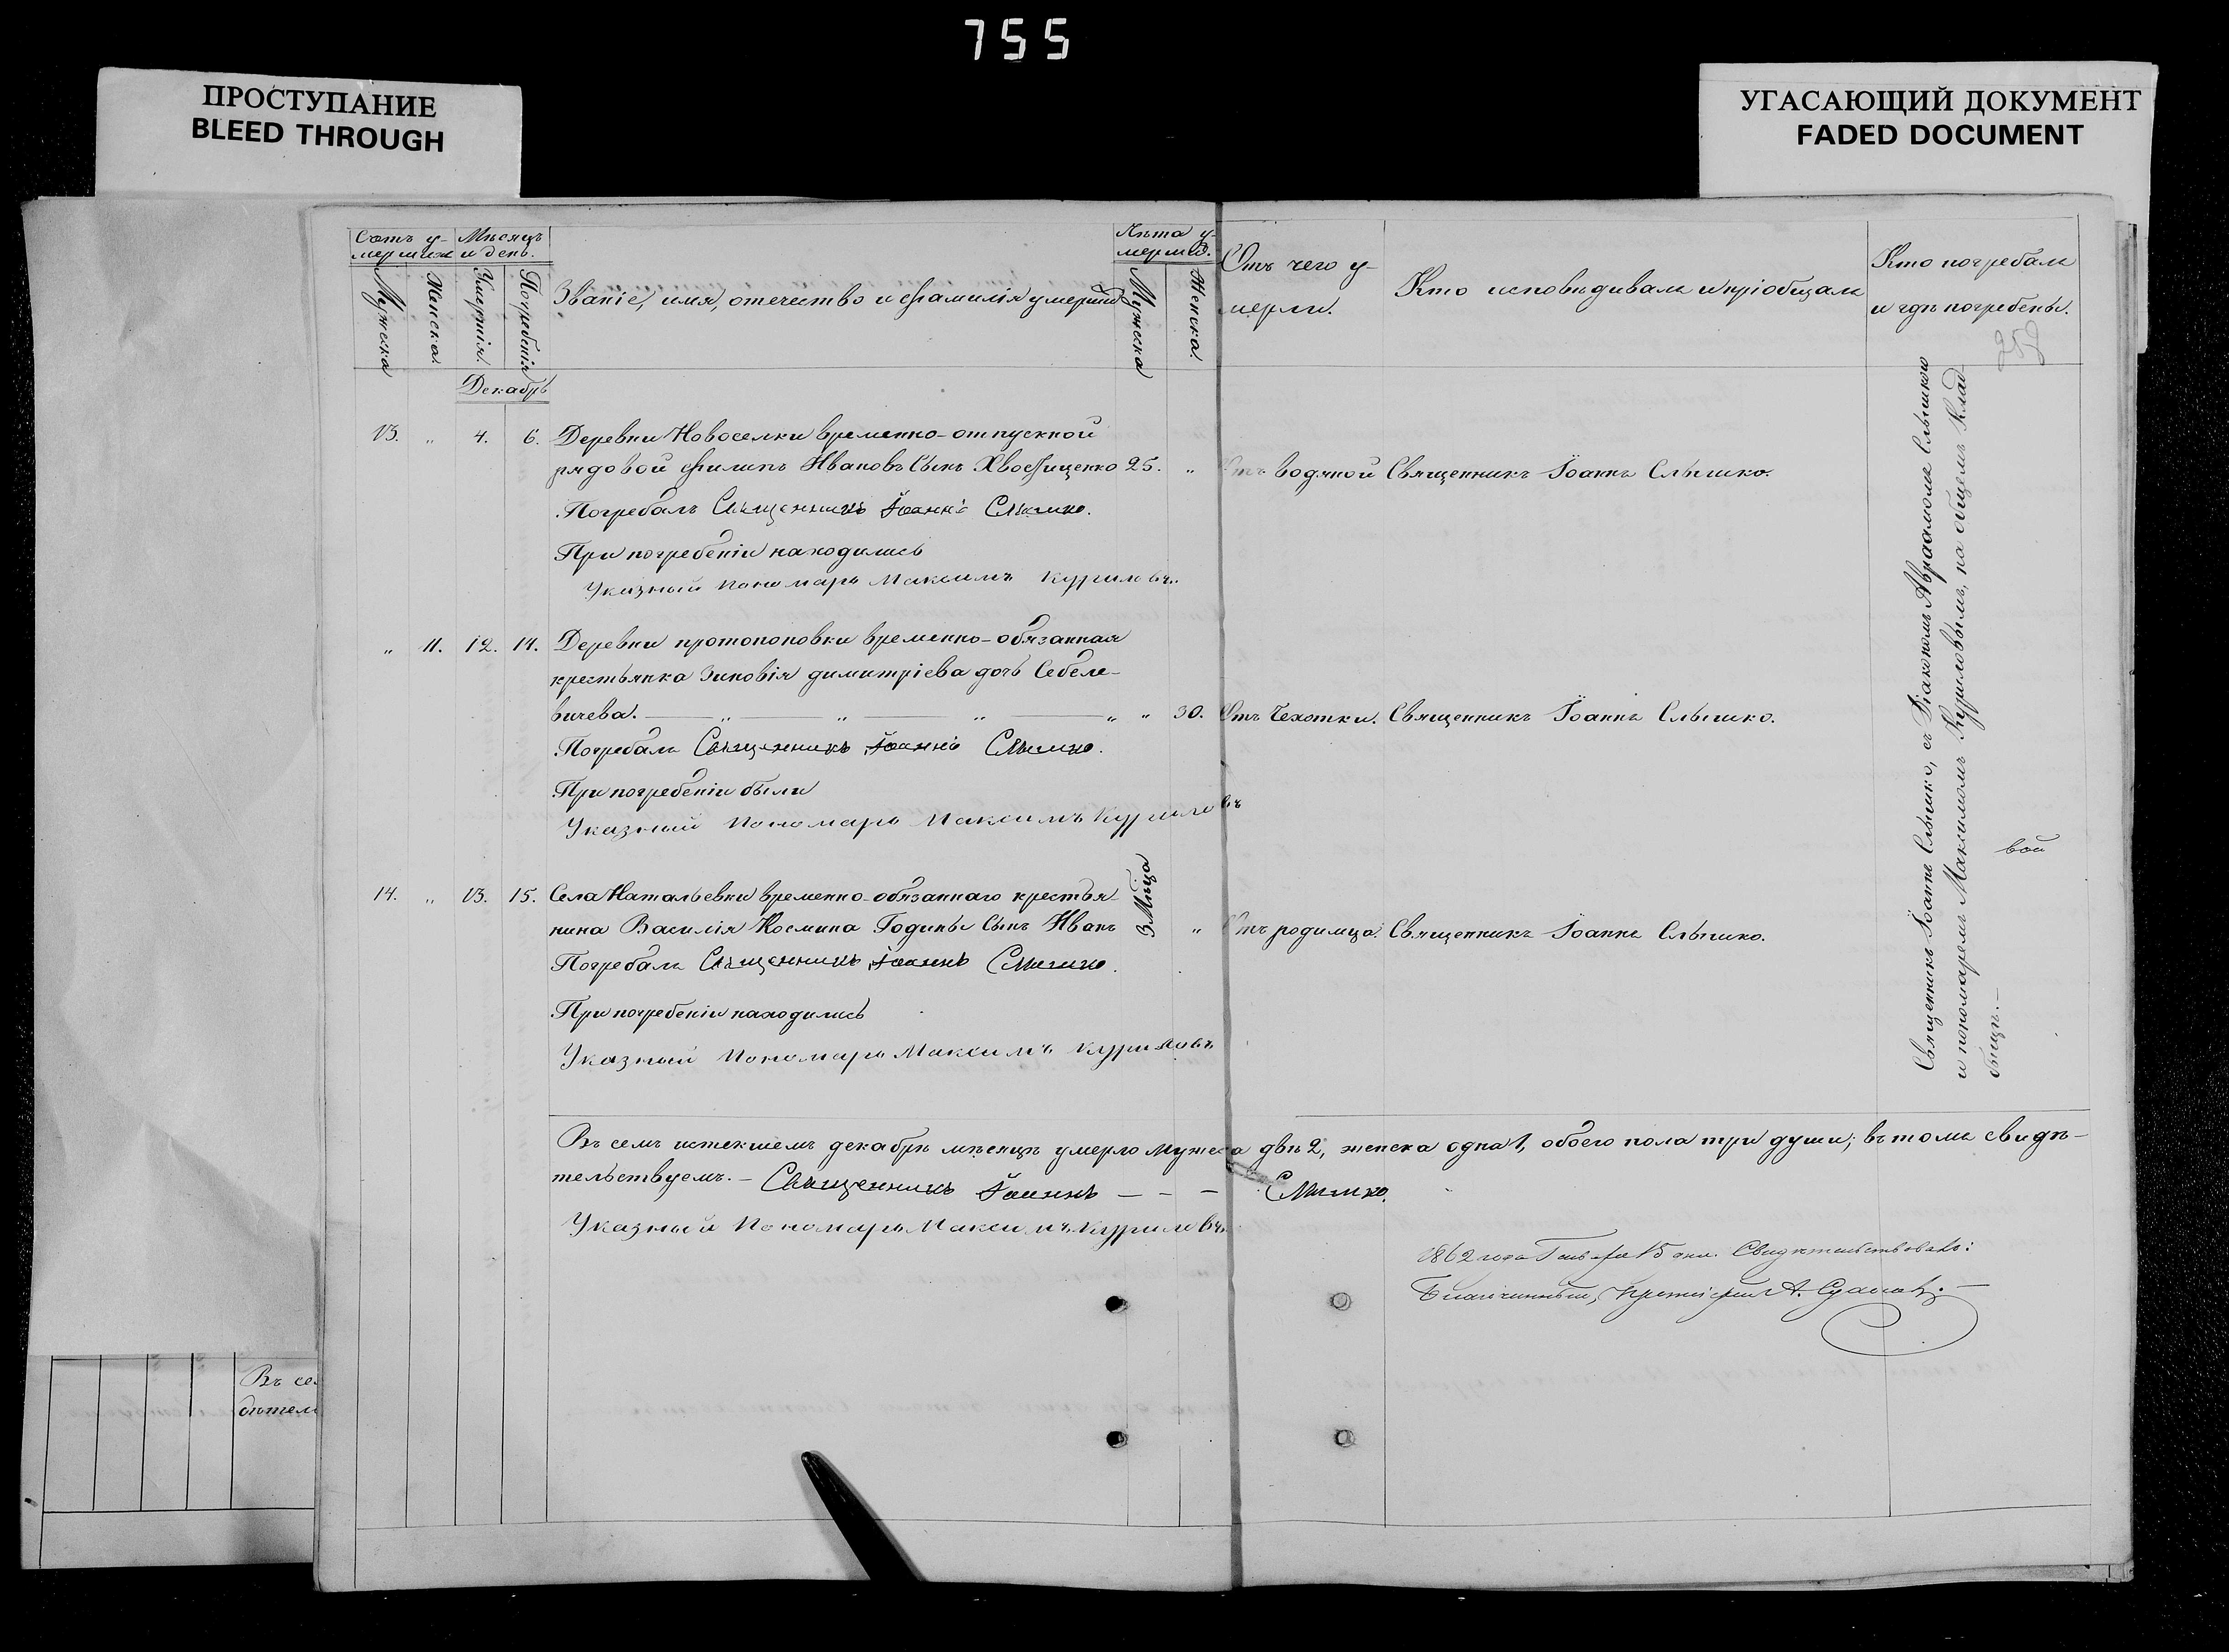 755
ПРОСТУПАНИЕ
BLEED THROUGH
УГАСАЮЩИЙ ДОКУМЕНТ
FADED DOCUMENT
Счетъ у-
мершихъ
Мѣсяцъ
и день.
Мужеска
Женска.
Умертія.
Погребенія
Званіе, имя, отечество и фамилія умершихъ
Лѣта у-
мерш.
Мужеска
Женска.
Отъ чего у-
мерли.
Кто исповѣдивалъ и пріобщалъ
Кто погребалъ
и гдѣ погребены.
Декабрь
13. „ 4. 6. Деревни Новоселки временно-отпускной
рядовой Филипъ Ивановъ Сынъ 25. „ Отъ водяной Священникъ Іоаннъ Слышко.
Погребалъ Священникъ Іоаннъ Слышко.
При погребеніи находились
Указный Пономарь Максимъ Куриловъ.
„ 11. 12. 14. Деревни протопоповки временно-обязанная
крестьянка Зиновія димитріева дочь Себеле-
вичева. — „ — „ — „ — „ „ 30. Отъ Чехотки. Священникъ Іоаннъ Слышко.
Погребалъ Священникъ Іоаннъ Слышко.
При погребеніи были
Указный Пономарь Максимъ Куриловъ
14. „ 13. 15. Села Натальевки временно-обязаннаго крестья-
нина Василія Космина Годины Сынъ Иванъ 3 Мѣца „ Отъ родимца. Священникъ Іоаннъ Слышко.
Погребалъ Священникъ Іоаннъ Слышко.
При погребеніи находились
Указный Пономарь Максимъ Куриловъ
Священникъ Іоаннъ Слышко, съ Діакономъ Авраамомъ Слышкою
и пономаремъ Максимомъ Куриловымъ, на общемъ Клад-
бищѣ.—
вой
Въ семъ истекшемъ декабрѣ мѣсяцѣ умерло мужеска двѣ 2, женска одна 1, обоего пола три души; въ томъ свидѣ-
тельствуемъ. — Священникъ Іоаннъ — — — Слышко.
Указный Пономарь Максимъ Куриловъ
1862 года Генваря 15 дня. Свидѣтельствовалъ:
Благочинный, Протоіерей А.
Въ се
дѣтель